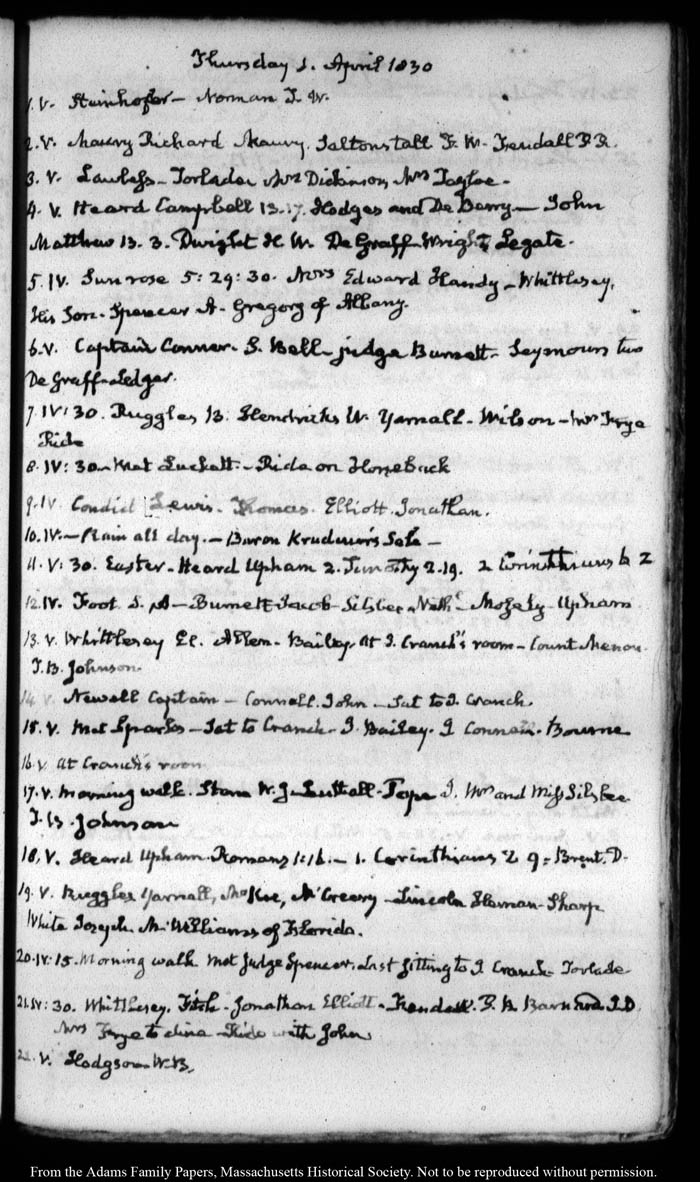 Thursday 1. April 1830
1. V. Steinhofer — Noman J. W.
2. V. Maury Richard Maury. Saltonstall F. W. Kendall P. R.
3. V. Lawless — Torlade Mrs Dickinson, Mrs Tayloe.
4. V. Heard Campbell 13. 17. Hodges and De Berry — John
Matthew 13. 3. Dwight H. W. De Graff Wright, Legate.
5. IV. Sun rose 5: 29: 30. Mrs Edward Handy — Whittlesey,
His Son. Spencer A. Gregory of Albany.
6. V. Captain Conner. S. Bell — judge Burnett. Seymours two
De Graff — Ledgar.
7. IV: 30. Ruggles B. Hendricks W. Yarnall. Wilson — Mrs Frye
Ride
8. IV: 30 — Met Luckett. — Ride on Horseback
9. IV. Condict Lewis. Thomas. Elliott Jonathan.
10. IV. — Rain all day. — Baron Krudener's Sale —
11. V: 30. Easter. Heard Upham 2. Timothy 2. 19. 2 Corinthians 6. 2
12. IV. Foot S. A — Burnett Jacob — Silsbee Nathl. Mozely — Upham
13. V. Whittlesey El. Allen. Bailey. At J. Cranch's room — Count Menou.
T. B. Johnson.
14 V. Newell Captain — Connell. John — Sat to J. Cranch.
15. V. Met Sparks — Sat to Cranch. J. Bailey. J Connell. Bourne
16. V. At Cranch's room
17. V. Morning walk. Storrs W. J. Luttall. Pope J. Mrs and Miss Silsbee
T. B. Johnson
18. V. Heard Upham. Romans 1: 16. — 1. Corinthians 2 9. Brent. D.
19. V. Ruggles Yarnall, McKee, McCreery — Lincoln Heman. Sharp
White Joseph McWilliams of Florida.
20. IV: 15. Morning walk met Judge Spencer. Last sitting to J Cranch. Torlade
21. IV: 30. Whittlesey. Fitch. Jonathan Elliott. Kendall. P. R. Barnard. D. D.
Mrs Frye to dine — Ride with John
22. V. Hodgson W. B.
From the Adams Family Papers, Massachusetts Historical Society. Not to be reproduced without permission.